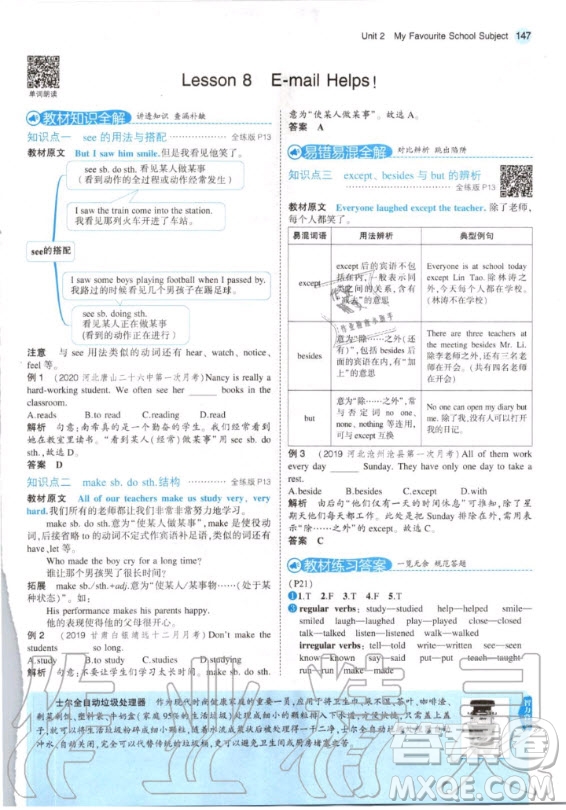 Unit 2 My Favourite School Subject 147
单词朗读
Lesson 8 E-mail Helps!
教材知识全解 讲透知识 查漏补缺
知识点一 see 的用法与搭配 全练版 P13
教材原文 But I saw him smile.但是我看见他笑了。
see sb. do sth. 看见某人做某事
(看到动作的全过程或动作经常发生)
I saw the man come into the station.
我看见那列火车开进了车站。
see的搭配
I saw some boys playing football when I passed by.
我路过的时候看见几个男孩子在踢足球。
see sb. doing sth.
看见某人正在做某事
(看到动作正在进行)
注意 与 see 用法类似的动词还有 hear、watch、notice、
feel 等。
例 1 (2020 河北唐山二十六中第一次月考) Nancy is really a
hard-working student. We often see her ____ books in the
classroom.
A.reads B.to read C.reading D.read
解析 句意:南希真的是一个勤奋的学生。我们经常看
她在教室里读书。“看到某人(经常)做某事”用 see sb. do
sth.,故选 D。
答案 D
知识点二 make sb. do sth.结构 全练版 P13
教材原文 All of our teachers make us study very, very
hard.我们所有的老师都让我们非常非常努力地学习。
make sb. do sth.意为“使某人做某事”,make 是使役动
词,后接省略 to 的动词不定式作宾语补足语,类似的词还有
have,let 等。
What made the boy cry for a long time?
谁让那个男孩哭了很长时间?
拓展 make sb./sth.+adj.意为“使某人/某事物……(处于某
种状态)”。如:
His performance makes his parents happy.
他的表现使得他的父母很开心。
例 2 (2019 甘肃白银靖远十二月月考) Don't make the
students ____ so long.
A.study B.to study C.studies D.studying
解析 句意:不要让学生们学习太长时间。make sb. do sth.
意为“使某人做某事”。故选 A。
答案 A
易错易混全解 对比辨析 跳出陷阱
知识点三 except、besides 与 but 的辨析
全练版 P13
教材原文 Everyone laughed except the teacher. 除了老师,
每个人都笑了。
易混词语 用法辨析 典型例句
except except 后的宾语不包
括在内,一般表示同
类之间的关系,含有
“减去”的意思
Everyone is at school today
except Lin Tao. 除林涛之
外,今天每个人都在学校。
(林涛不在学校)
besides 意为“除……之外(还
有)”,包括 besides 后
面的宾语在内,有“加
上”的意思
There are three teachers at
the meeting besides Mr. Li.
除李老师之外,还有三名老
师在开会。(四名老师都
在开会)
but 意为“除……之外”,常
与否定词 no one、
none、nothing 等连用,
可与 except 互换
No one can open my diary but
me. 除了我,没有人可以打开
我的日记。
例 3 (2019 河北沧州沧县第一次月考) All of them work
every day ____ Sunday. They have only one day to take a
rest.
A.beside B.besides C.except D.but
解析 由后句“他们仅有一天的时间休息”可推知,除了星
期天他们每天都工作。此处是把 Sunday 排除在外,常用表
示“除……之外”的 except。故选 C。
答案 C
教材练习答案 一览无余 规范答题
(P21)
❶1.T 2.F 3.F 4.F 5.T
❸regular verbs: study—studied help—helped smile—
smiled laugh—laughed play—played close—closed
talk—talked listen—listened walk—walked
irregular verbs: tell—told write—written see—seen
know—known say—said put—put speak—spoken
run—run make—made
士尔全自动垃圾处理器
作业帮
答案
MXQE.COM